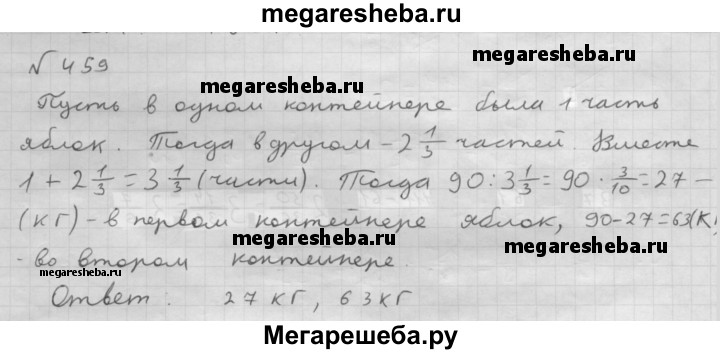 megaresheba.ru
№ 459
megaresheba.ru
Пусть в одном контейнере была 1 часть
яблок. Тогда в другом – 2 1/3 частей. Вместе
megaresheba.ru
1 + 2 1/3 = 3 1/3 (части). Тогда 90 : 3 1/3 = 90 · 3/10 = 27 –
(кг) – в первом контейнере яблок, 90–27=63(К)
megaresheba.ru
megaresheba.ru
- во втором контейнере.
megaresheba.ru
Ответ: 27 кг, 63 кг
Мегарешеба.ру